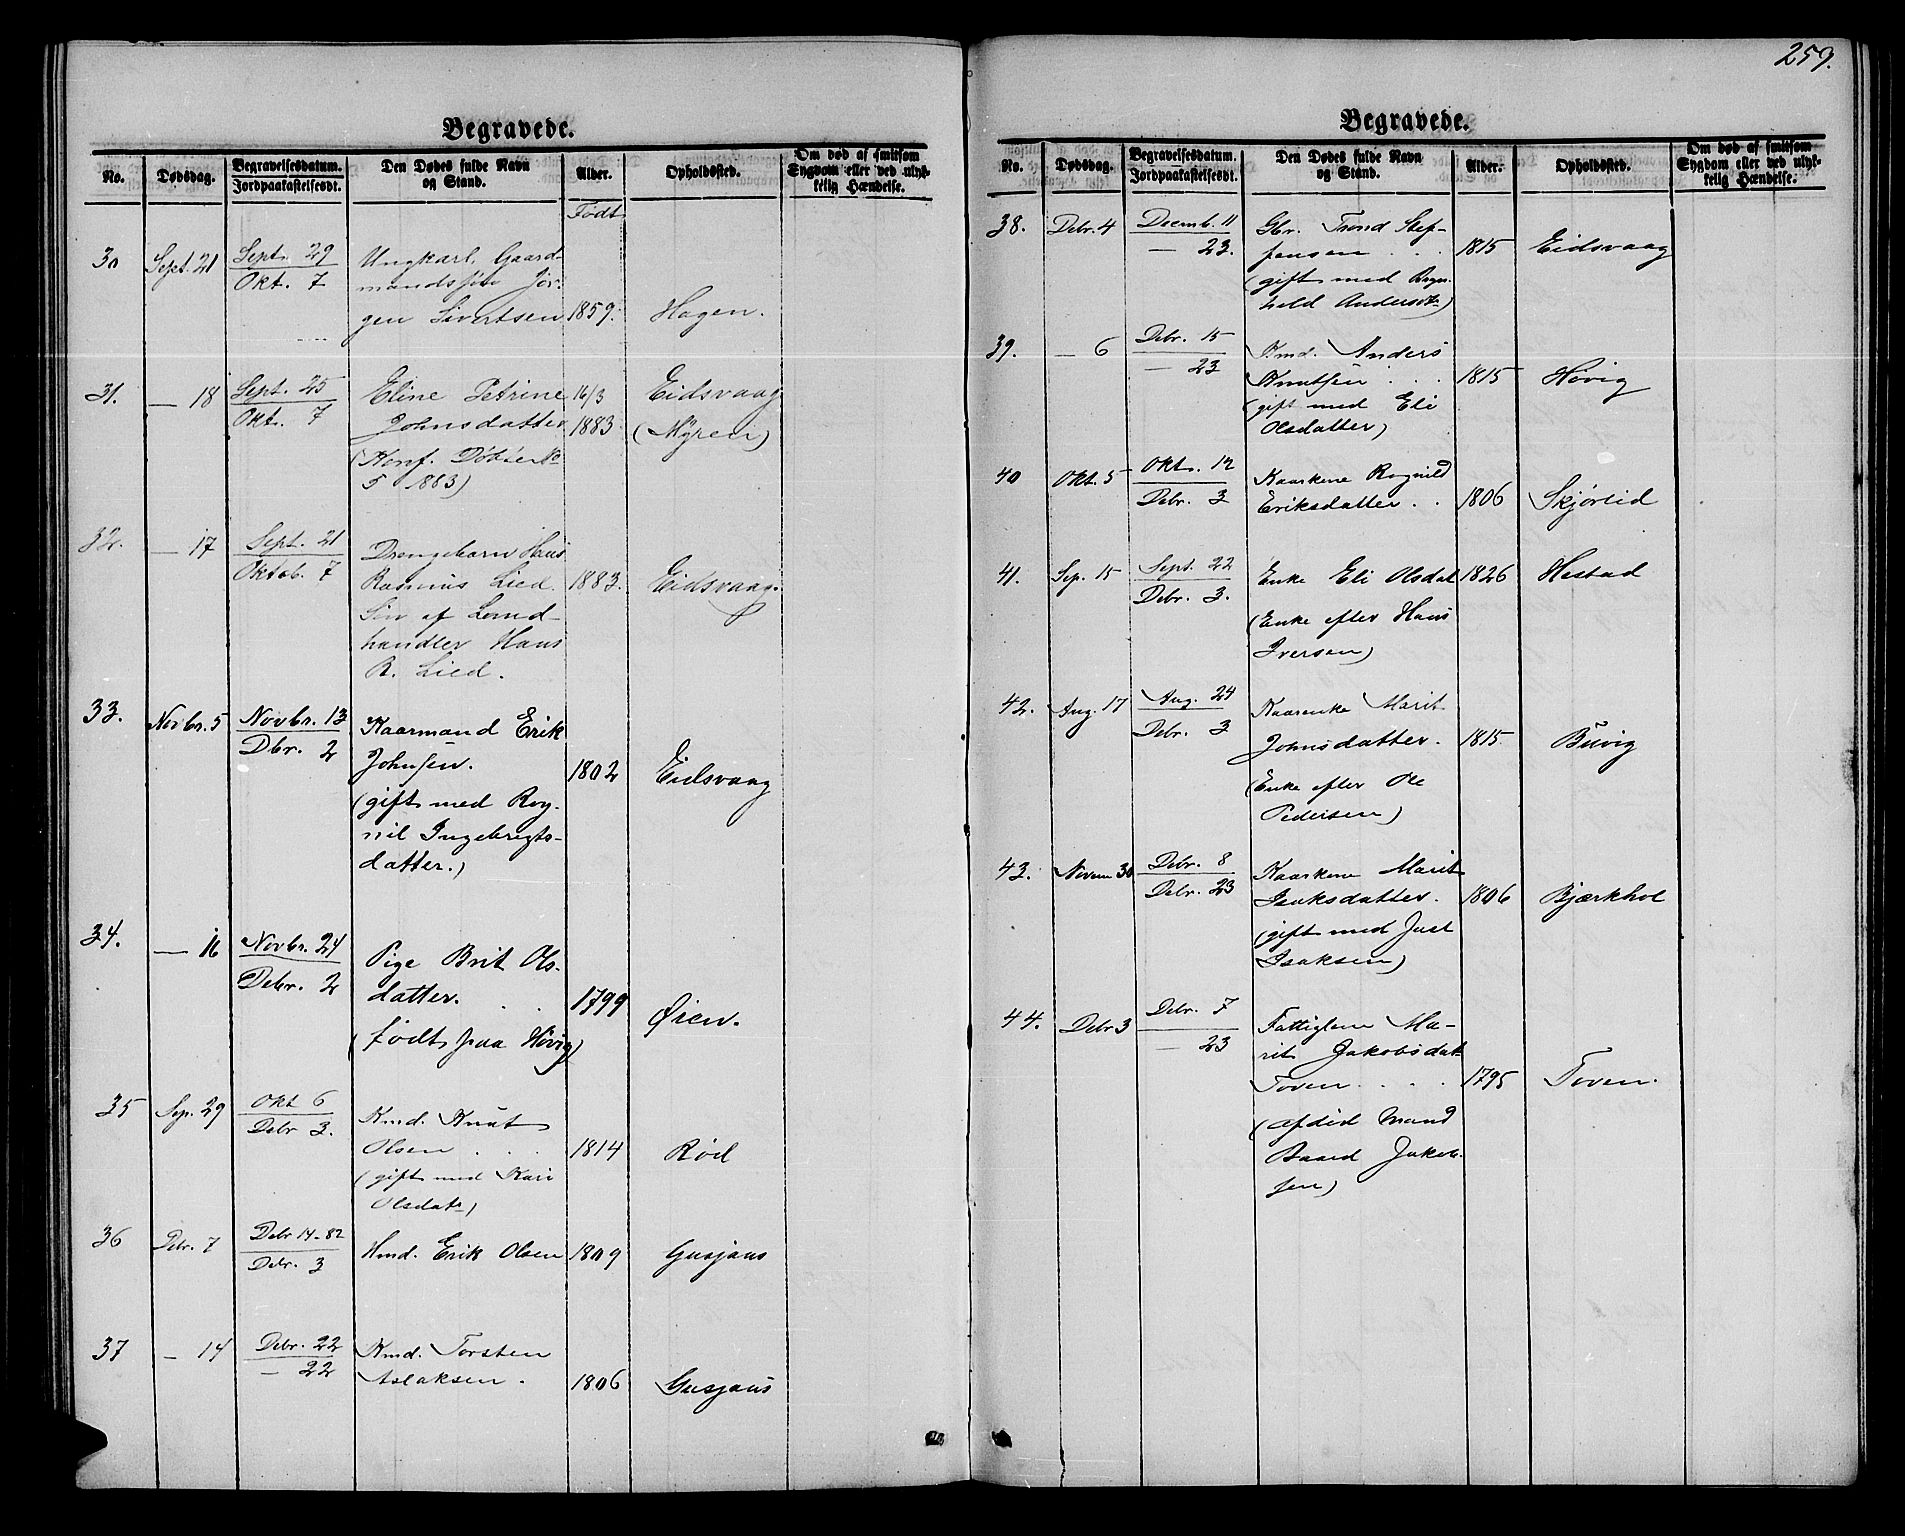 Begravede.
No. Dødsdag. Begravelsesdatum. Jordpaakastelsesdt. Den Dødes fulde Navn og Stand. Alder. Opholdssted. Om død af smitsom Sygdom eller ved ulykkelig Hændelse.
Født
30 Sept. 21 Sept. 29 Ungkarl, Gaard-
Okt. 7 mandssøn Jør-
gen Sivertsen 1859. Hagen.
31. — 18 Sept. 25 Eline Petrine 16/3 Eidsvaag
Okt. 7 Johnsdatter 1883. (Myren)
(Konf. Døbte No
5 1883)
32. — 17 Sept. 21 Drengebarn Hans
Oktob. 7 Rasmus Lied. 1883. Eidsvaag.
Søn af Land-
handler Hans
R. Lied.
33. Novbr. 5 Novbr. 13 Kaarmand Erik
Dbr. 2 Johnsen. 1802 Eidsvaag
(gift med Rog-
nil Ingebrigts-
datter.)
34. — 16 Novbr. 24 Pige Brit Ols-
Debr. 2 datter. . . 1799 Øien.
(født paa Høvig)
35 Sep. 29 Okt 6 Kmd. Knut
Debr 3. Olsen . . . 1814 Rød
(gift med Kari
Olsdatr)
36 Debr. 7 Debr 14-82 Hmd. Erik Olsen 1809 Gusjaas
Debr. 3
37 — 14 Debr. 22 Kmd. Torsten
— 22 Aslaksen. 1806 Gusjaas
259.
Begravede.
No. Dødsdag. Begravelsesdatum. Jordpaakastelsesdt. Den Dødes fulde Navn og Stand. Alder. Opholdssted. Om død af smitsom Sygdom eller ved ulykkelig Hændelse.
38. Debr. 4 Decemb. 11 Gbr. Trond Stef-
— 23. fensen . . . 1815 Eidsvaag
(gift med Ragn-
hild Andersdtr)
39. — 6 Debr. 15 Kmd. Anders
— 23 Knutsen . . . 1815 Høvig
(gift med Eli
Olsdatter)
40 Okt. 5 Okt. 12 Kaarkone Rognild
Debr. 3 Eriksdatter . . 1806 Skjørlid
41. Sep. 15 Sept. 22 Enke Eli Olsdat 1826 Hestad
Debr. 3. (Enke efter Hans
Iversen)
42. Aug. 17 Aug. 24 Kaarenke Marit
Debr. 3 Johnsdatter. 1815. Buvig
(Enke efter Ole
Pedersen)
43. Novem 30 Debr. 8 Kaarkone Marit
Debr. 23 Isaksdatter. 1806 Bjærkhol
(gift med Just
Isaksen)
44. Debr 3 Debr. 7 Fattiglem Ma-
— 23 rit Jakobsdat
Toven . . . . 1795 Toven.
(afdød Mand
Baard Jakob-
sen)